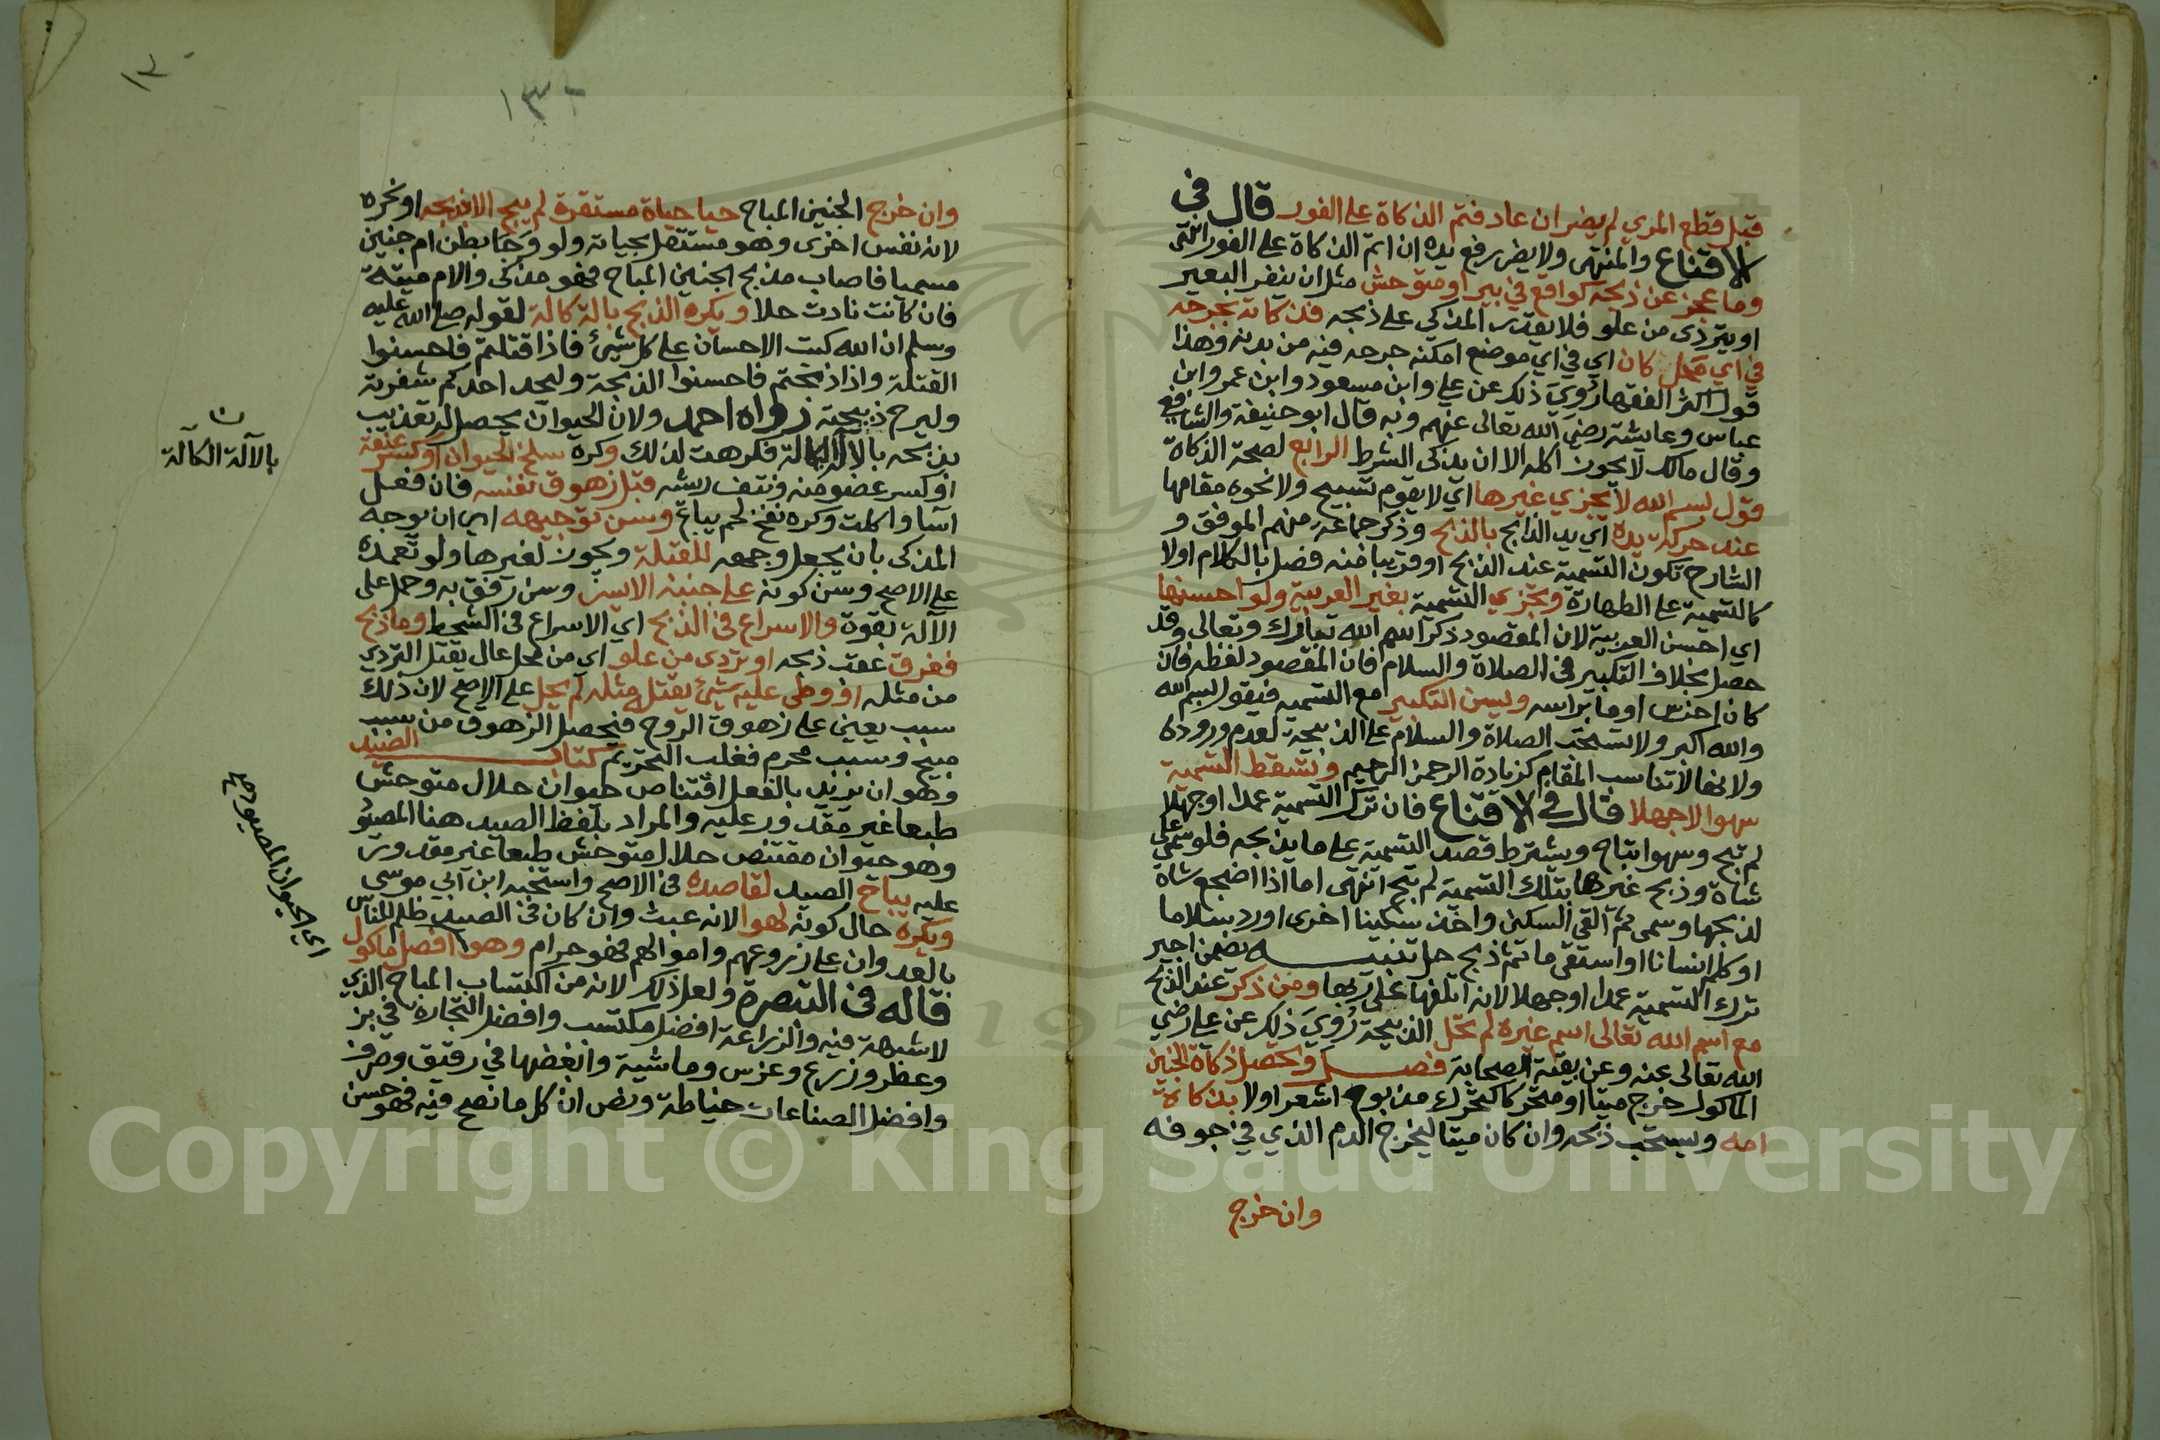 قبل قطع المري لم يضر ان عاد فتمم الذكاة على الفور قال في
الاقناع والمنتهى ولا يضر رفع يده ان اتم الذكاة على الفور انتهى
وما عجز عن ذبحه كواقع في بير او متوحش مثل ان ينفر البعير
او يتردى من علو فلا يقدر المذكي على ذبحه فذكاته بجرحه
في اي محل كان اي في اي موضع امكنه جرحه فيه من بدنه وهذا
قول اكثر الفقها روي ذلك عن علي وابن مسعود وابن عمر وابن
عباس وعايشة رضي الله تعالى عنهم وبه قال ابو حنيفة والشافعي
وقال مالك لا يجوز اكله الا ان يذكى الشرط الرابع لصحة الذكاة
قول بسم الله لا يجزي غيرها اي لا يقوم تسبيح ولا نحوه مقامها
عند حركة يده اي يد الذابح بالذبح وذكر جماعة منهم الموفق و
الشارح تكون التسمية عند الذبح او قريبا منه فصل بالكلام اولا
كالتسمية على الطهارة وتجزي التسمية بغير العربية ولو احسنها
اي احسن العربية لان المقصود ذكر اسم الله تبارك وتعالى وقد
حصل بخلاف التكبير في الصلاة والسلام فان المقصود لفظه فان
كان اخرس اوما براسه ويسن التكبير مع التسمية فيقول بسم الله
والله اكبر ولا تستحب الصلاة والسلام على الذبيحة لعدم وروده
ولانها لا تناسب المقام كزيادة الرحمن الرحيم وتسقط التسمية
سهوا لا جهلا قال في الاقناع فان ترك التسمية عمدا او جهلا
لم تبح وسهوا تباح ويشترط قصد التسمية على ما يذبحه فلو سمى على
شاة وذبح غيرها بتلك التسمية لم تبح انتهى اما اذا اضجع شاة
ليذبحها وسمى ثم القى السكين واخذ سكينا اخرى او رد سلاما
او كلم انسانا او استقى ما ثم ذبح حل تنبيه يضمن اجير
ترك التسمية عمدا او جهلا لانه اتلفها على ربها ومن ذكر عند الذبح
مع اسم الله تعالى اسم غيره لم تحل الذبيحة روي ذلك عن علي رضي
الله تعالى عنه وعن بقية الصحابة فصل وتحصل ذكاة الجنين
الماكول خرج ميتا او متحركا كتحرك مذبوح اشعر اولا بذكاة
امه ويستحب ذبحه وان كان ميتا ليخرج الدم الذي في جوفه
وان خرج
١٣٢
وان خرج الجنين المباح حيا حياة مستقرة لم يبح الا بذبحه او نحره
لانه نفس اخرى وهو مستقل بحياته ولو وجا بطن ام جنين
مسميا فاصاب مذبح الجنين المباح فهو مذكى والام ميتة
فان كانت نادت حلا ويكره الذبح بالة كالة لقوله صلى الله عليه
وسلم ان الله كتب الاحسان على كل شيئ فاذا قتلتم فاحسنوا
القتلة واذا ذبحتم فاحسنوا الذبحة وليحد احدكم شفرته
وليرح ذبيحته رواه احمد ولان الحيوان يحصل له تعذيب
بذبحه بالالة الكالة فكرهت لذلك وكره سلخ الحيوان او كسر عنقه
او كسر عضو منه ونتف ريشه قبل زهوق نفسه فان فعل
اسا واكلت وكره نفخ لحم يباع وسن توجيهه اي ان يوجه
المذكى بان يجعل وجهه للقبلة ويجوز لغيرها ولو تعمده
على الاصح وسن كونه على جنبه الايسر وسن رفق به وحمل على
الآلة بقوة والاسراع في الذبح اي الاسراع في الشحط وما ذبح
فغرق عقب ذبحه او تردى من علو اي من محل عال يقتل التردي
من مثله او وطى عليه شيئ يقتل مثله لم يحل على الاصح لان ذلك
سبب يعين على زهوق الروح فيحصل الزهوق من سبب
مبيح وسبب محرم فغلب التحريم كتاب الصيد
وهو ان يريد بالفعل اقتناص حيوان حلال متوحش
طبعا غير مقدور عليه والمراد بلفظ الصيد هنا المصيود
وهو حيوان مقتنص حلال متوحش طبعا غير مقدور
عليه يباح الصيد لقاصده في الاصح واستحبه ابن ابي موسى
ويكره حال كونه لهوا لانه عبث وان كان في الصيد ظلم للناس
بالعدوان على زروعهم واموالهم فهو حرام وهو افضل ماكول
قاله في التبصرة ولعل ذلك لانه من اكتساب المباح الذي
لا شبهة فيه والزراعة افضل مكتسب وافضل التجارة في بز
وعطر وزرع وغرس وماشية وابغضها في رقيق وصرف
وافضل الصناعات خياطة ونص ان كل ما نصح فيه فهو حسن
ن
بالآلة الكآلة
اي الحيوان المصيود
Copyright © King Saud University
195